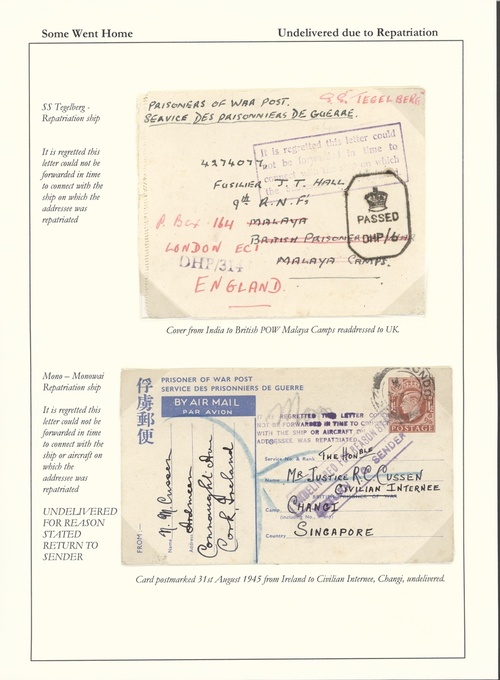 Some Went Home
Undelivered due to Repatriation
SS Tegelberg -
Repatriation ship
It is regretted this
letter could not be
forwarded in time
to connect with the
ship on which the
addressee was
repatriated
PRISONERS OF WAR POST.
SERVICE DES PRISONNIERS DE GUERRE.
S.S. TEGELBERG
It is regretted this letter could
not be in time to
on which
4274077
FUSILIER J. T. HALL
9th R.N.F.
P. Box 164 MALAYA
BRITISH PRISONER
LONDON EC1
MALAYA CAMPS.
DHP/314
ENGLAND.
PASSED
DHP/6
Cover from India to British POW Malaya Camps readdressed to UK.
Mono – Monowai
Repatriation ship
It is regretted this
letter could not be
forwarded in time
to connect with the
ship or aircraft on
which the
addressee was
repatriated
UNDELIVERED
FOR REASON
STATED
RETURN TO
SENDER
俘虜郵便
PRISONER OF WAR POST
SERVICE DES PRISONNIERS DE GUERRE
BY AIR MAIL
PAR AVION
IT IS REGRETTED THIS LETTER CO
NOT BE FORWARDED IN TIME TO C
WITH THE SHIP OR AIRCRAFT ON
ADDRESSEE WAS REPATRIATED
POSTAGE
SENDER
Service No. & Rank THE HONBLE
Name MR. JUSTICE R. E. CUSSEN
CIVILIAN INTERNEE
Camp CHANGI
Country SINGAPORE
FROM –
Name N. M. Cussen
Address Ardmeen
Connaught Ave
Cork, Ireland
Card postmarked 31st August 1945 from Ireland to Civilian Internee, Changi, undelivered.